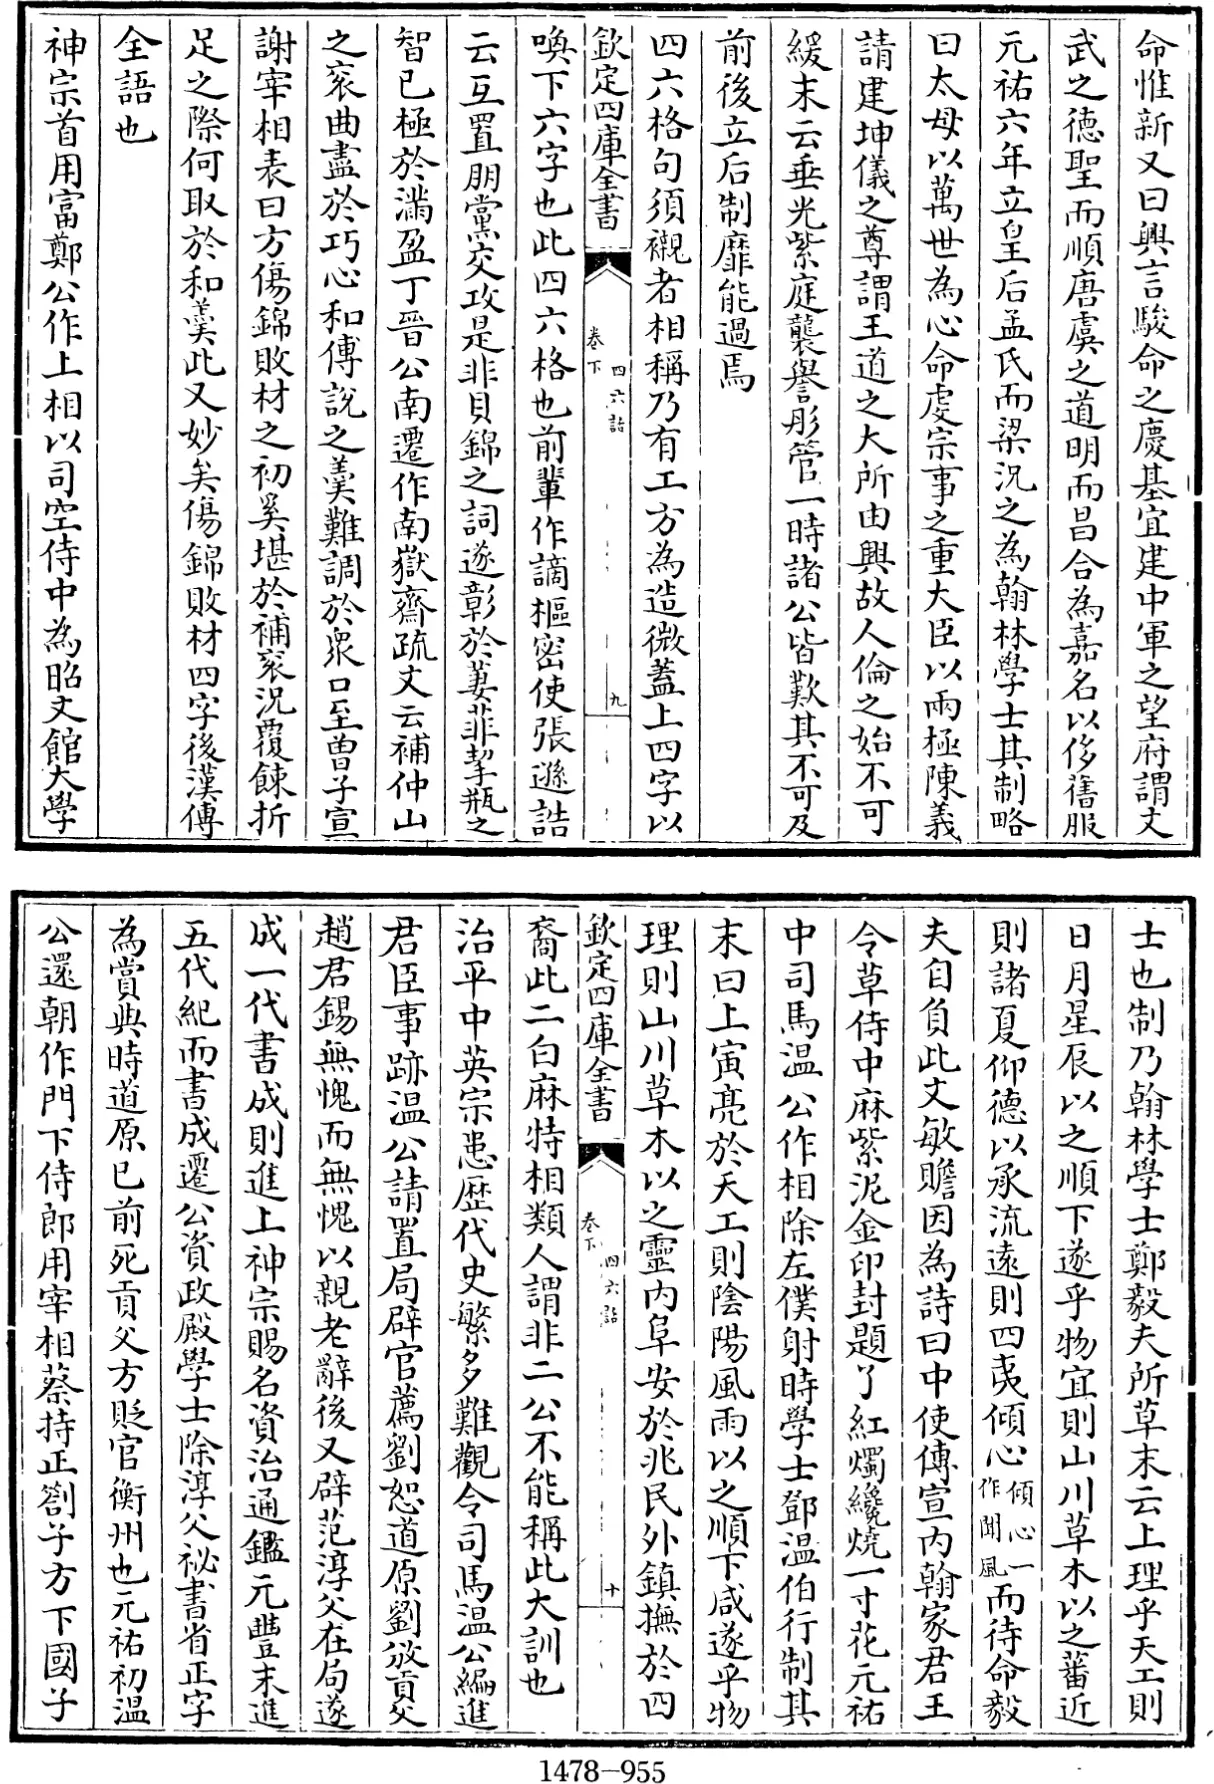 命惟新又曰興言駿命之慶基宜建中軍之望府謂文
武之德聖而順唐虞之道明而昌合為嘉名以侈舊服
元祐六年立皇后孟氏而梁況之為翰林學士其制略
曰太母以萬世為心命虔宗事之重大臣以兩極陳義
請建坤儀之尊謂王道之大所由興故人倫之始不可
緩末云垂光紫庭襲譽彤管一時諸公皆歎其不可及
前後立后制靡能過焉
四六格句須襯者相稱乃有工方為造微蓋上四字以
欽定四庫全書
卷下
四六話
九
喚下六字也此四六格也前輩作謫樞密使張遜誥
云互置朋黨交攻是非貝錦之詞遂彰於萋菲挈瓶之
智已極於滿盈丁晉公南遷作南嶽齋疏文云補仲山
之衮曲盡於巧心和傅說之羹難調於衆口至曾子宣
謝宰相表曰方傷錦敗材之初奚堪於補衮況覆餗折
足之際何取於和羹此又妙矣傷錦敗材四字後漢傅
全語也
神宗首用富鄭公作上相以司空侍中為昭文館大學
士也制乃翰林學士鄭毅夫所草末云上理乎天工則
日月星辰以之順下遂乎物宜則山川草木以之蕃近
則諸夏仰德以承流遠則四夷傾心傾心一作聞風而待命毅
夫自負此文敏贍因為詩曰中使傳宣內翰家君王
令草侍中麻紫泥金印封題了紅燭纔燒一寸花元祐
中司馬溫公作相除左僕射時學士鄧溫伯行制其
末曰上寅亮於天工則陰陽風雨以之順下咸遂乎物
理則山川草木以之靈內阜安於兆民外鎮撫於四
欽定四庫全書
卷下
四六話
十
裔此二白麻特相類人謂非二公不能稱此大訓也
治平中英宗患歷代史繁多難觀令司馬溫公編進
君臣事跡溫公請置局辟官薦劉恕道原劉攽貢父
趙君錫無愧而無愧以親老辭後又辟范淳父在局遂
成一代書成則進上神宗賜名資治通鑑元豐末進
五代紀而書成遷公資政殿學士除淳父祕書省正字
為賞典時道原已前死貢父方貶官衡州也元祐初溫
公還朝作門下侍郎用宰相蔡持正劄子方下國子
1478-955